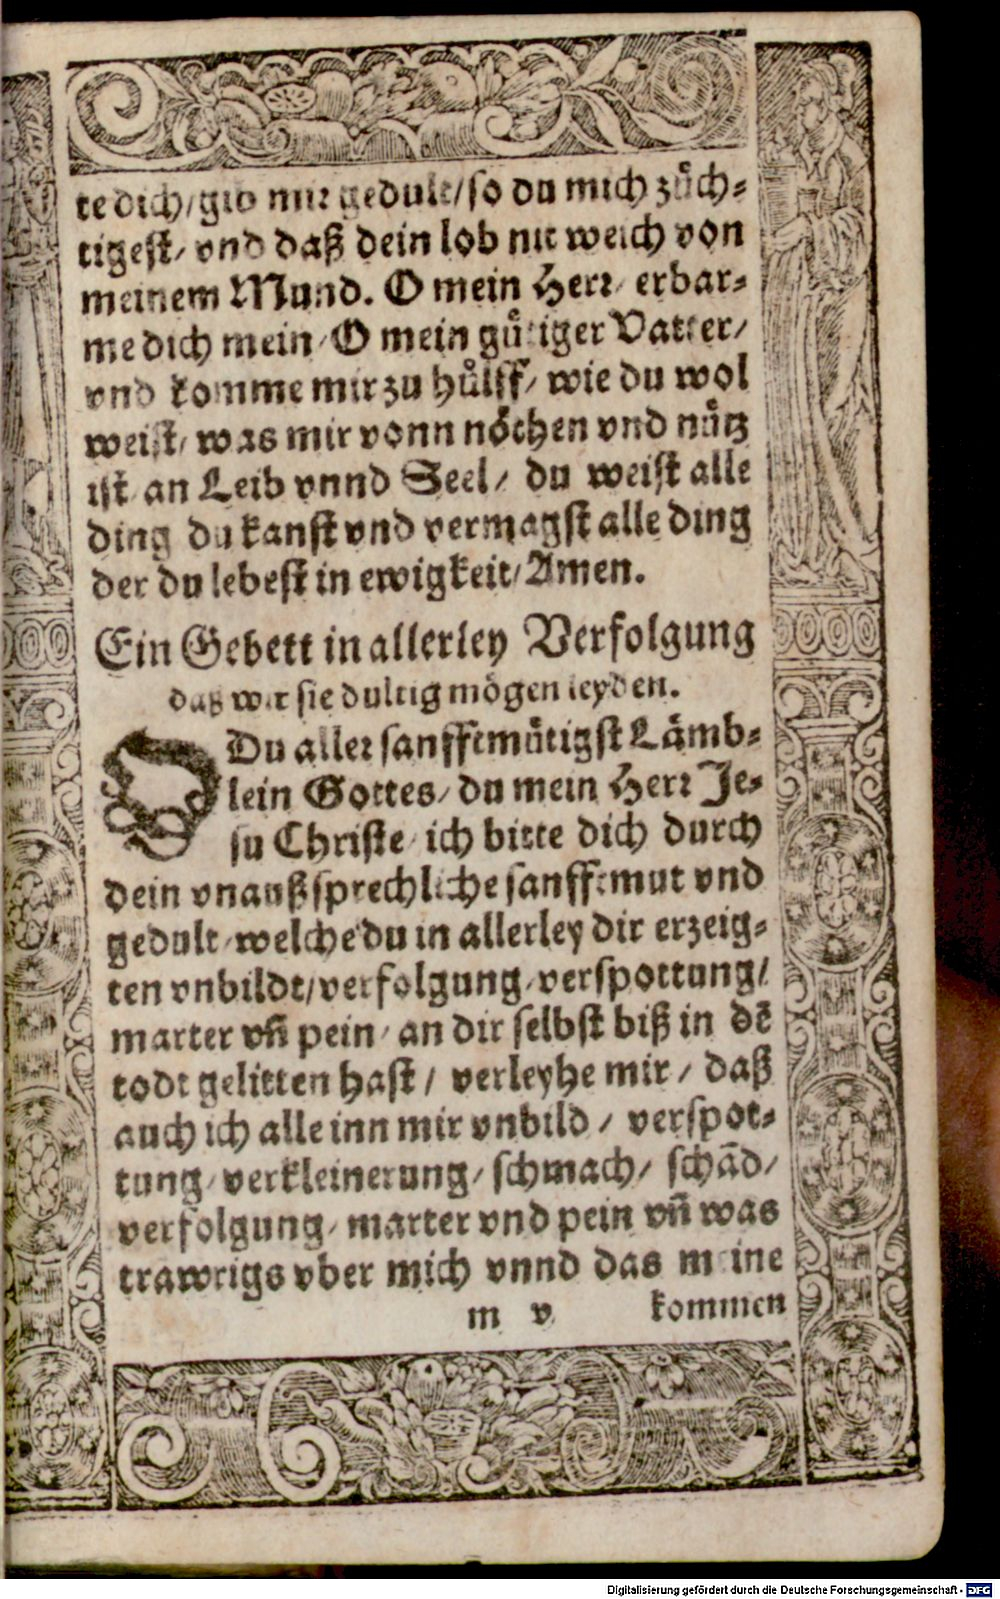 te dich/ gib mir gedult/ so du mich zuͤch-
tigest/ vnd daß dein lob nit weich von
meinem Mund. O mein Herr/ erbar-
me dich mein/ O mein guͤtiger Vatter/
vnd komme mir zu huͤlff/ wie du wol
weist/ was mir vonn noͤthen vnd nuͤtz
ist an Leib vnnd Seel/ du weist alle
ding du kanst vnd vermagst alle ding
der du lebest in ewigkeit/ Amen.
Ein Gebett in allerley Verfolgung
daß wir sie dultig moͤgen leyden.
O Du aller sanfftmuͤtigst Laͤmb-
lein Gottes/ du mein Herr Je-
su Christe/ ich bitte dich durch
dein vnaußsprechliche sanfftmut vnd
gedult/ welche du in allerley dir erzeig-
ten vnbildt/ verfolgung/ verspottung/
marter vn̄ pein/ an dir selbst biß in dē
todt gelitten hast/ verleyhe mir/ daß
auch ich alle inn mir vnbild/ verspot-
tung/ verkleinerung/ schmach/ schād/
verfolgung/ marter vnd pein vn̄ was
trawrigs vber mich vnnd das meine
m v kommen
Digitalisierung gefördert durch die Deutsche Forschungsgemeinschaft - DFG